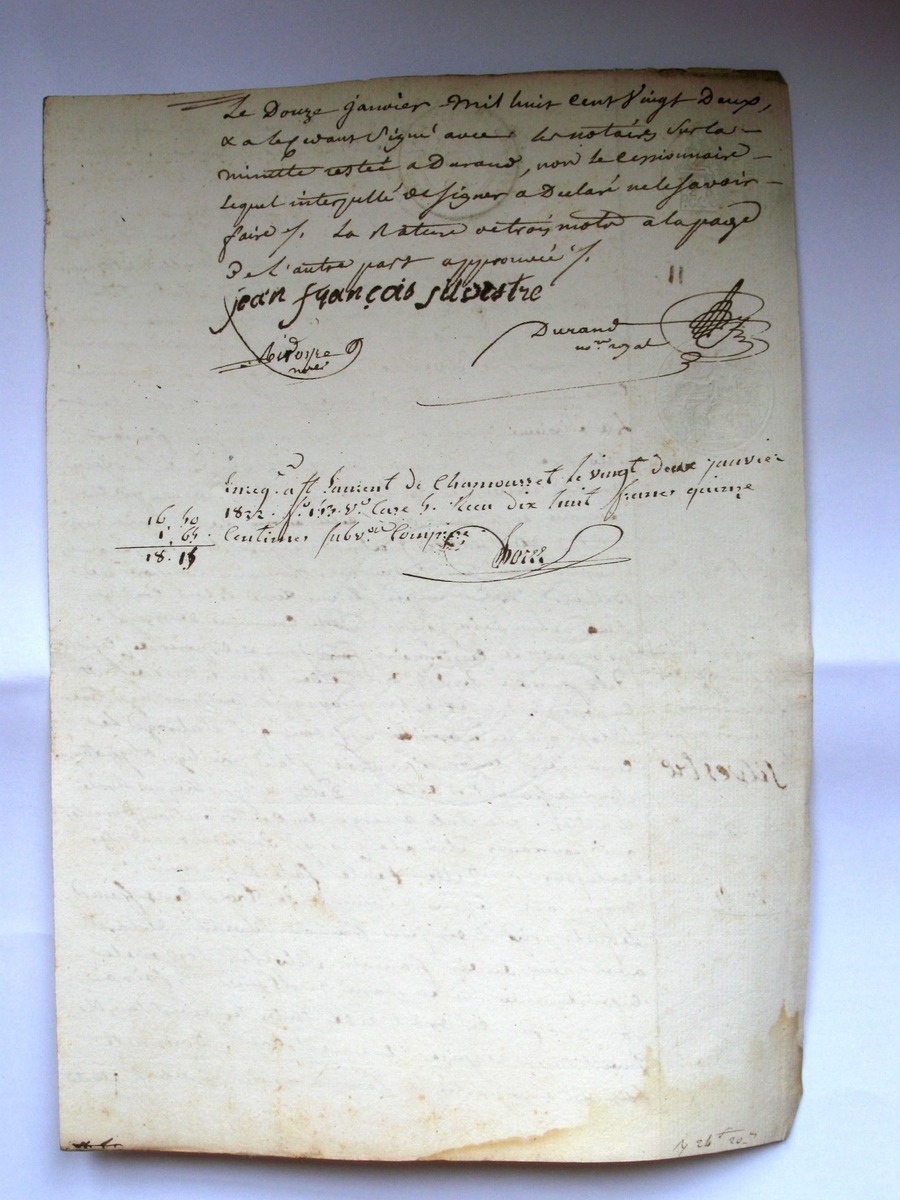 Le Douze janvier mil huit cent Vingt Deux,
& a le Cédant Signé avec les notaires sur la
minutte restée a Durand, non le Cessionnaire
Lequel interpellé de signer a Declaré ne le savoir
faire ./. La Rature de trois mots a la page
De l'autre part approuvée ./.
jean françois silvestre
Durand
no.re royal
Enreg. a St Laurent de Chamousset le vingt deux janvier
1822. f.o 153 v.o Case 5. Reçu dix huit francs quinze
Centimes subv.on Comprise
16. 50
1. 65.
18. 15
silvestre